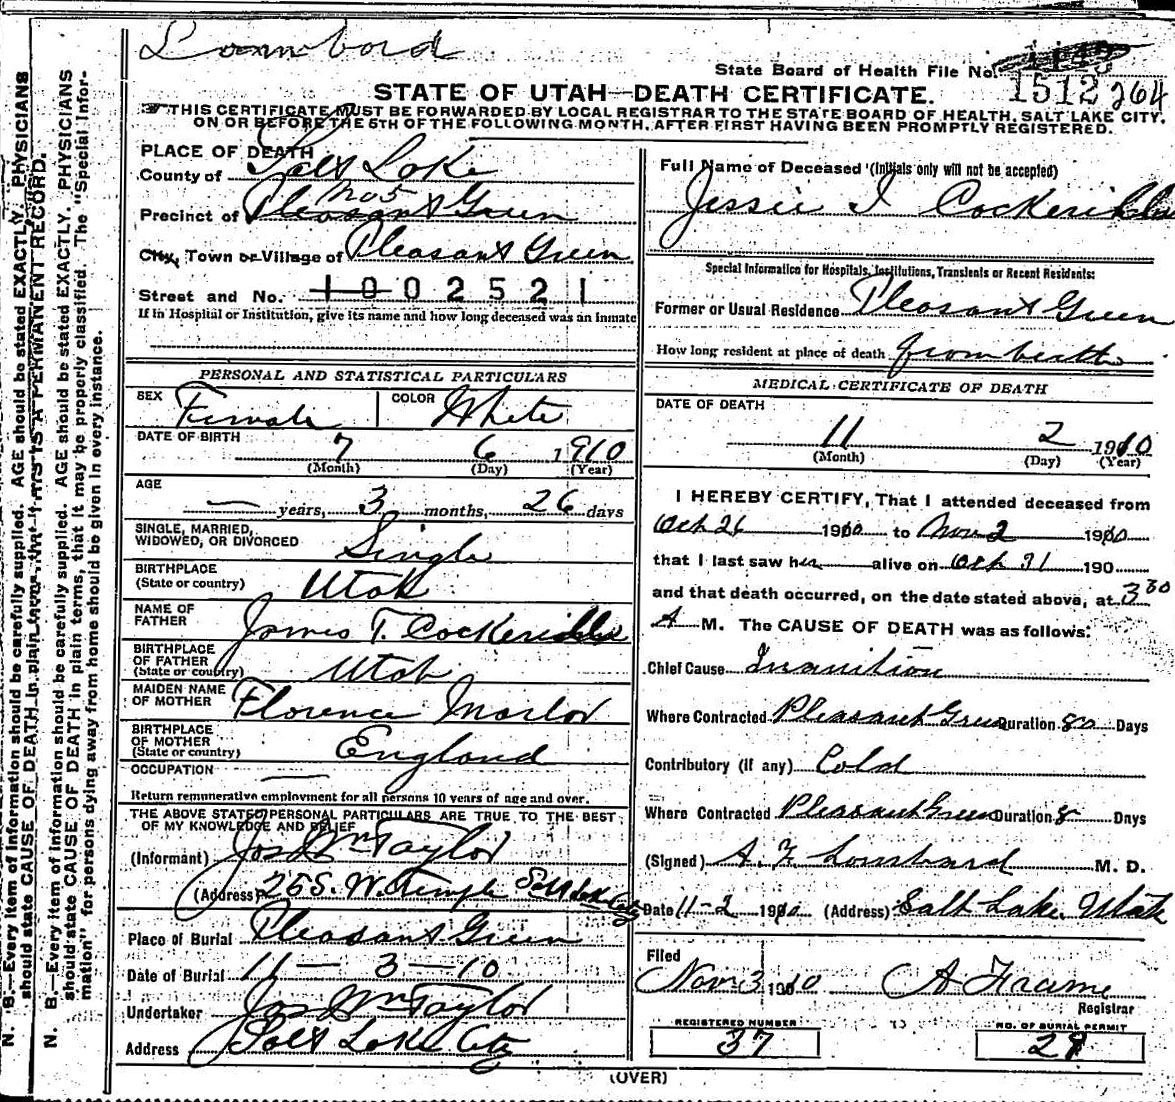 Lombard
State Board of Health File No.
1512 264
STATE OF UTAH—DEATH CERTIFICATE.
THIS CERTIFICATE MUST BE FORWARDED BY LOCAL REGISTRAR TO THE STATE BOARD OF HEALTH, SALT LAKE CITY,
ON OR BEFORE THE 5TH OF THE FOLLOWING MONTH, AFTER FIRST HAVING BEEN PROMPTLY REGISTERED.
PLACE OF DEATH
County of Salt Lake
No 5
Precinct of Pleasant Green
City, Town or Village of Pleasant Green
Street and No. 1002521
If in Hospital or Institution, give its name and how long deceased was an inmate
PERSONAL AND STATISTICAL PARTICULARS
SEX Female COLOR White
DATE OF BIRTH 7 6 1910
(Month) (Day) (Year)
AGE
— years, 3 months, 26 days
SINGLE, MARRIED,
WIDOWED, OR DIVORCED Single
BIRTHPLACE
(State or country) Utah
NAME OF
FATHER James T. Cockerill
BIRTHPLACE
OF FATHER
(State or country) Utah
MAIDEN NAME
OF MOTHER Florence Marlor
BIRTHPLACE
OF MOTHER
(State or country) England
OCCUPATION —
Return remunerative employment for all persons 10 years of age and over.
THE ABOVE STATED PERSONAL PARTICULARS ARE TRUE TO THE BEST
OF MY KNOWLEDGE AND BELIEF
(Informant) Jos Wm Taylor
(Address) 26 S. W. Temple Salt Lake City
Place of Burial Pleasant Green
Date of Burial 11 — 3 — 10
Undertaker Jos Wm Taylor
Address Salt Lake City
Full Name of Deceased (Initials only will not be accepted)
Jessie I
Special Information for Hospitals, Institutions, Transients or Recent Residents:
Former or Usual Residence Pleasant Green
How long resident at place of death from birth
MEDICAL CERTIFICATE OF DEATH
DATE OF DEATH
11 2 1910
(Month) (Day) (Year)
I HEREBY CERTIFY, That I attended deceased from
Oct 26 1910 to Nov 2 1910
that I last saw her alive on Oct 31 190
and that death occurred, on the date stated above, at 3 30
A M. The CAUSE OF DEATH was as follows:
Chief Cause Inanition
Where Contracted Pleasant Green Duration 80 Days
Contributory (if any) Cold
Where Contracted Pleasant Green Duration 8 Days
(Signed) A. Z Lombard M. D.
Date 11-2 1910 (Address) Salt Lake, Utah
Filed
Nov 3 1910 A Frame
Registrar
REGISTERED NUMBER
37
NO. OF BURIAL PERMIT
29
(OVER)
N. B.—Every item of information should be carefully supplied. AGE should be stated EXACTLY. PHYSICIANS
should state CAUSE OF DEATH in plain
THIS IS A PERMANENT RECORD.
N. B.—Every item of information should be carefully supplied. AGE should be stated EXACTLY. PHYSICIANS
should state CAUSE OF DEATH in plain terms, that it may be properly classified. The "Special Infor-
mation" for persons dying away from home should be given in every instance.